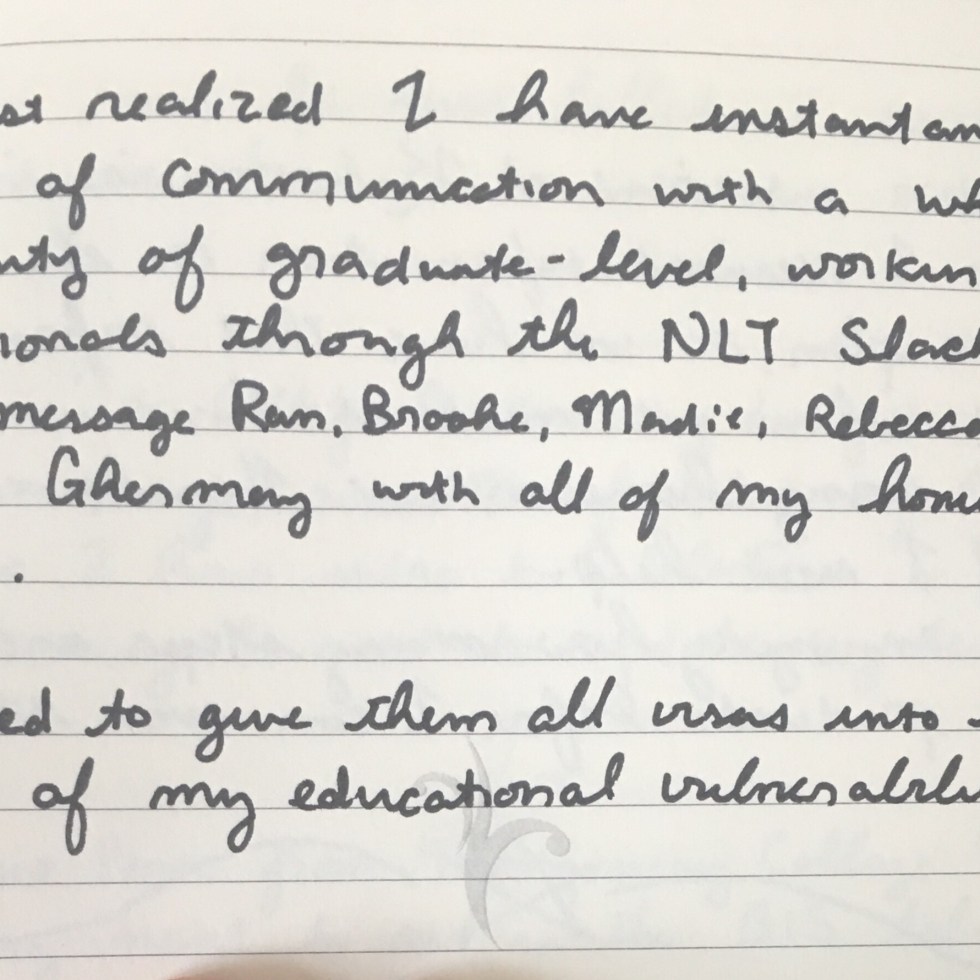 st realized I have instantan
of communication with a wh
nty of graduate-level, workin
ionals through the NLT Slack
message Ram, Brooke, Madie, Rebecca
with all of my hom
.
ed to give them all visas into
of my educational vulnerabili